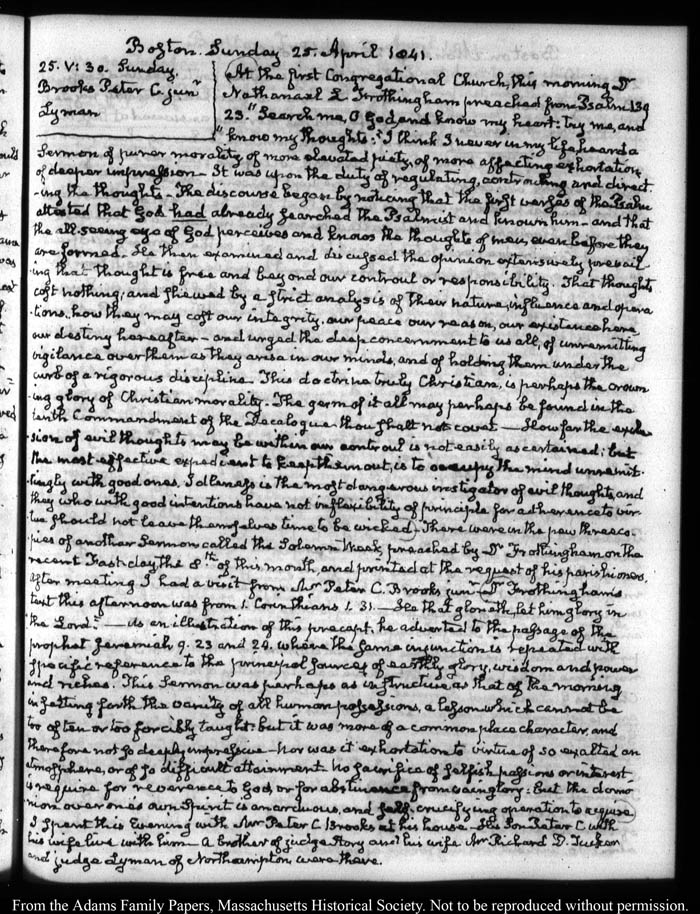 Boston. Sunday 25. April 1841.
25. V: 30. Sunday.
Brooks Peter C. junr
Lyman
At the first Congregational Church, this morning Dr
Nathanael L Frothingham preached from Psalm 139
23. "Search me, O God, and know my heart: try me, and
"know my thoughts:" I think I never in my life heard a
Sermon of purer morality, of more elevated piety, of more affecting exhortation,
of deeper impression— It was upon the duty of regulating, controuling and direct-
-ing the thoughts. The discourse began by noticing that the first verses of the Psalm
attested that God had already searched the Psalmist and known him— and that
the all-seeing eye of God perceives and knows the thoughts of men, even before they
are formed. He then examined and discussed the opinion extensively prevail-
ing that thought is free and beyond our controul or responsibility. That thoughts
cost nothing; and shewed by a strict analysis of their nature, influence and opera-
-tions, how they may cost our integrity, our peace our reason, our existence here,
our destiny hereafter— and urged the deep concernment to us all, of unremitting
vigilance over them as they arise in our minds, and of holding them under the
curb of a rigorous discipline. This doctrine truly Christian, is perhaps the crown-
ing glory of Christian morality. The germ of it all may perhaps be found in the
tenth Commandment of the Decalogue. thou shalt not covet— How far the exclu-
sion of evil thoughts may be within our controul is not easily ascertained; but
the most effective expedient to keep them out, is to occupy the mind unremit-
tingly with good ones. Idleness is the most dangerous instigator of evil thoughts, and
they who with good intentions have not inflexibility of principle for adherence to vir-
tue should not leave themselves time to be wicked. There were in the pew three co-
pies of another Sermon called the Solemn Week, preached by Dr Frothingham on the
recent Fast-day, the 8th of this month, and printed at the request of his parishioners.
After meeting I had a visit from Mr Peter C. Brooks junr Dr Frothingham's
text this afternoon was from 1. Corinthians 1. 31.— He that glorieth, let him glory in
the Lord."— As an illustration of this precept, he adverted to the passage of the
prophet Jeremiah 9. 23 and 24. where the same injunction is repeated with
specific reference to the principal sources of earthly glory, wisdom and power
and riches. This Sermon was perhaps as instructive as that of the morning
in setting forth the vanity of all human possessions, a lesson which cannot be
too often or too forcibly taught: but it was more of a common place character, and
therefore not so deeply impressive— Nor was it exhortation to virtue of so exalted an
atmosphere, or of so difficult attainment. No sacrifice of selfish passions or interest
is require for reverence to God, or for abstinence from vainglory: but the domi-
nion over one's own Spirit is an arduous, and self-crucifying operation to acquire
I spent this Evening with Mr Peter C Brooks at his house— His Son Peter C with
his wife live with him— A brother of judge Story and his wife Mr Richard D. Tucker
and judge Lyman of Northampton were there.
From the Adams Family Papers, Massachusetts Historical Society. Not to be reproduced without permission.